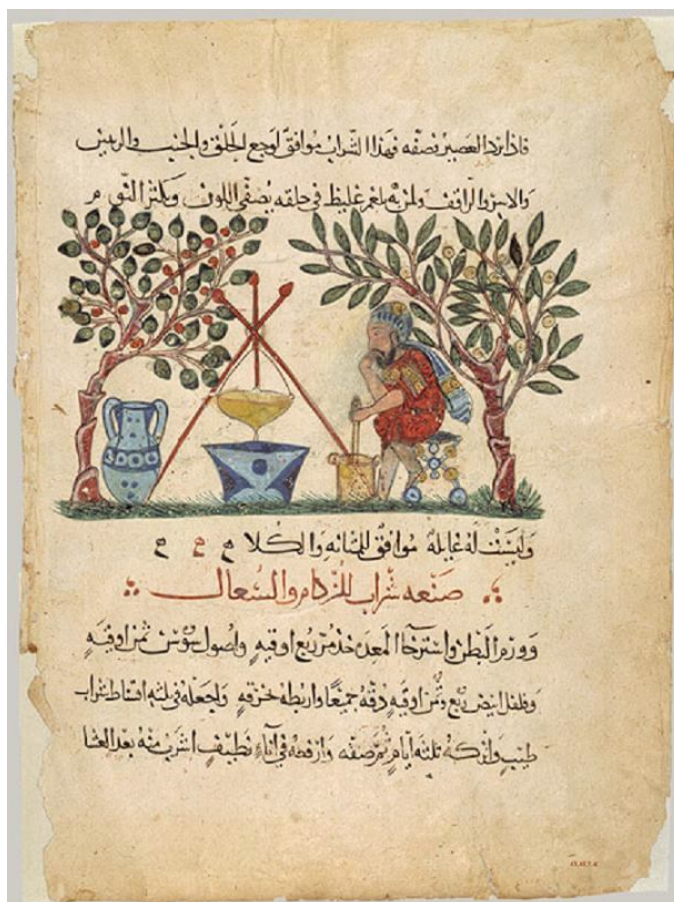 فاذا برد العصير نصفه فهذا الشراب موافق لوجع الحلق والجنب والريس
والاسر والراقف ولمن به بلغم غليظ في حلقه يصفي اللون ويكثر النوم م
وليست له غايله موافق للمثانه والكلا ح ح ح
صنعه شراب للزكام والسعال
وورم البطن واسترخا المعده خذ مر ربع اوقيه واصول سوسن ثمن اوقيه
وفلفل ابيض ربع وثمن اوقيه دقه جميعا واربطه خرقه واجعله في ثلثه اقساط شراب
طيب واتركه ثلثه ايام ثم صفه وارفعه في اناء نظيف اشرب منه بعد العشا